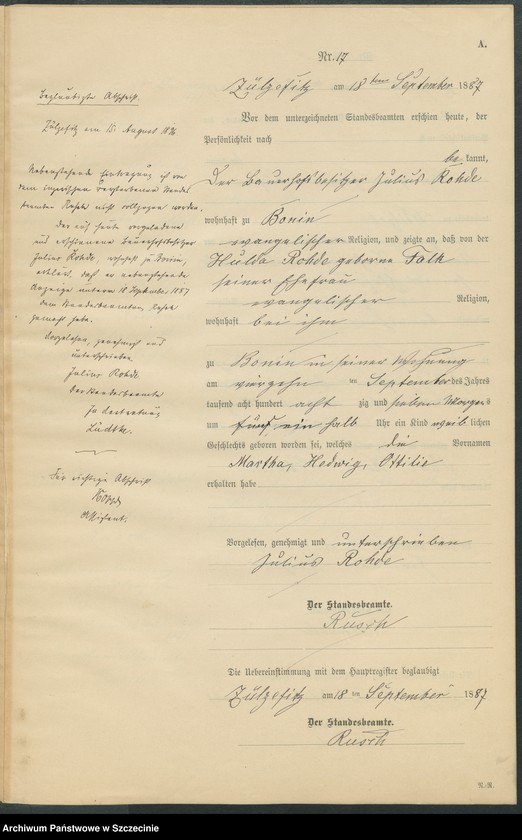 A.
Nr. 17
Zülzefitz am 18ten September 1887
Vor dem unterzeichneten Standesbeamten erschien heute, der
Persönlichkeit nach
be kannt,
Der Bauerhofsbesitzer Julius Rohde
wohnhaft zu Bonin
evangelischer Religion, und zeigte an, daß von der
Hulda Rohde geborne Falk
seiner Ehefrau
evangelischer Religion,
wohnhaft bei ihm
zu Bonin in seiner Wohnung
am vierzehn ten September des Jahres
tausend acht hundert acht zig und sieben Morgens
um fünf ein halb Uhr ein Kind weib lichen
Geschlechts geboren worden sei, welches die Vornamen
Martha, Hedwig, Ottilie
erhalten habe
Vorgelesen, genehmigt und unterschrieben
Julius Rohde
Der Standesbeamte.
Rusch
Die Uebereinstimmung mit dem Hauptregister beglaubigt
Zülzefitz am 18 ten September 1887
Der Standesbeamte.
Rusch
Beglaubigte Abschrift.
Zülzefitz am 15. August 18
Nebenstehende Eintragung ist von
dem inzwischen verstorbenen Standes
beamten nicht vollzogen worden.
Der auf heute vorgeladene
und erschienene Bauerhofsbesitzer
Julius Rohde, wohnhaft zu Bonin,
erklärt, daß er nebenstehende
Anzeige unterm 18. September 1887
dem Standesbeamten
gemacht habe.
Vorgelesen, genehmigt und
unterschrieben
Julius Rohde
Der Standesbeamte
In Vertretung
Lüdtke.
Für richtige Abschrift
Assistent.
N.-R.
Archiwum Państwowe w Szczecinie